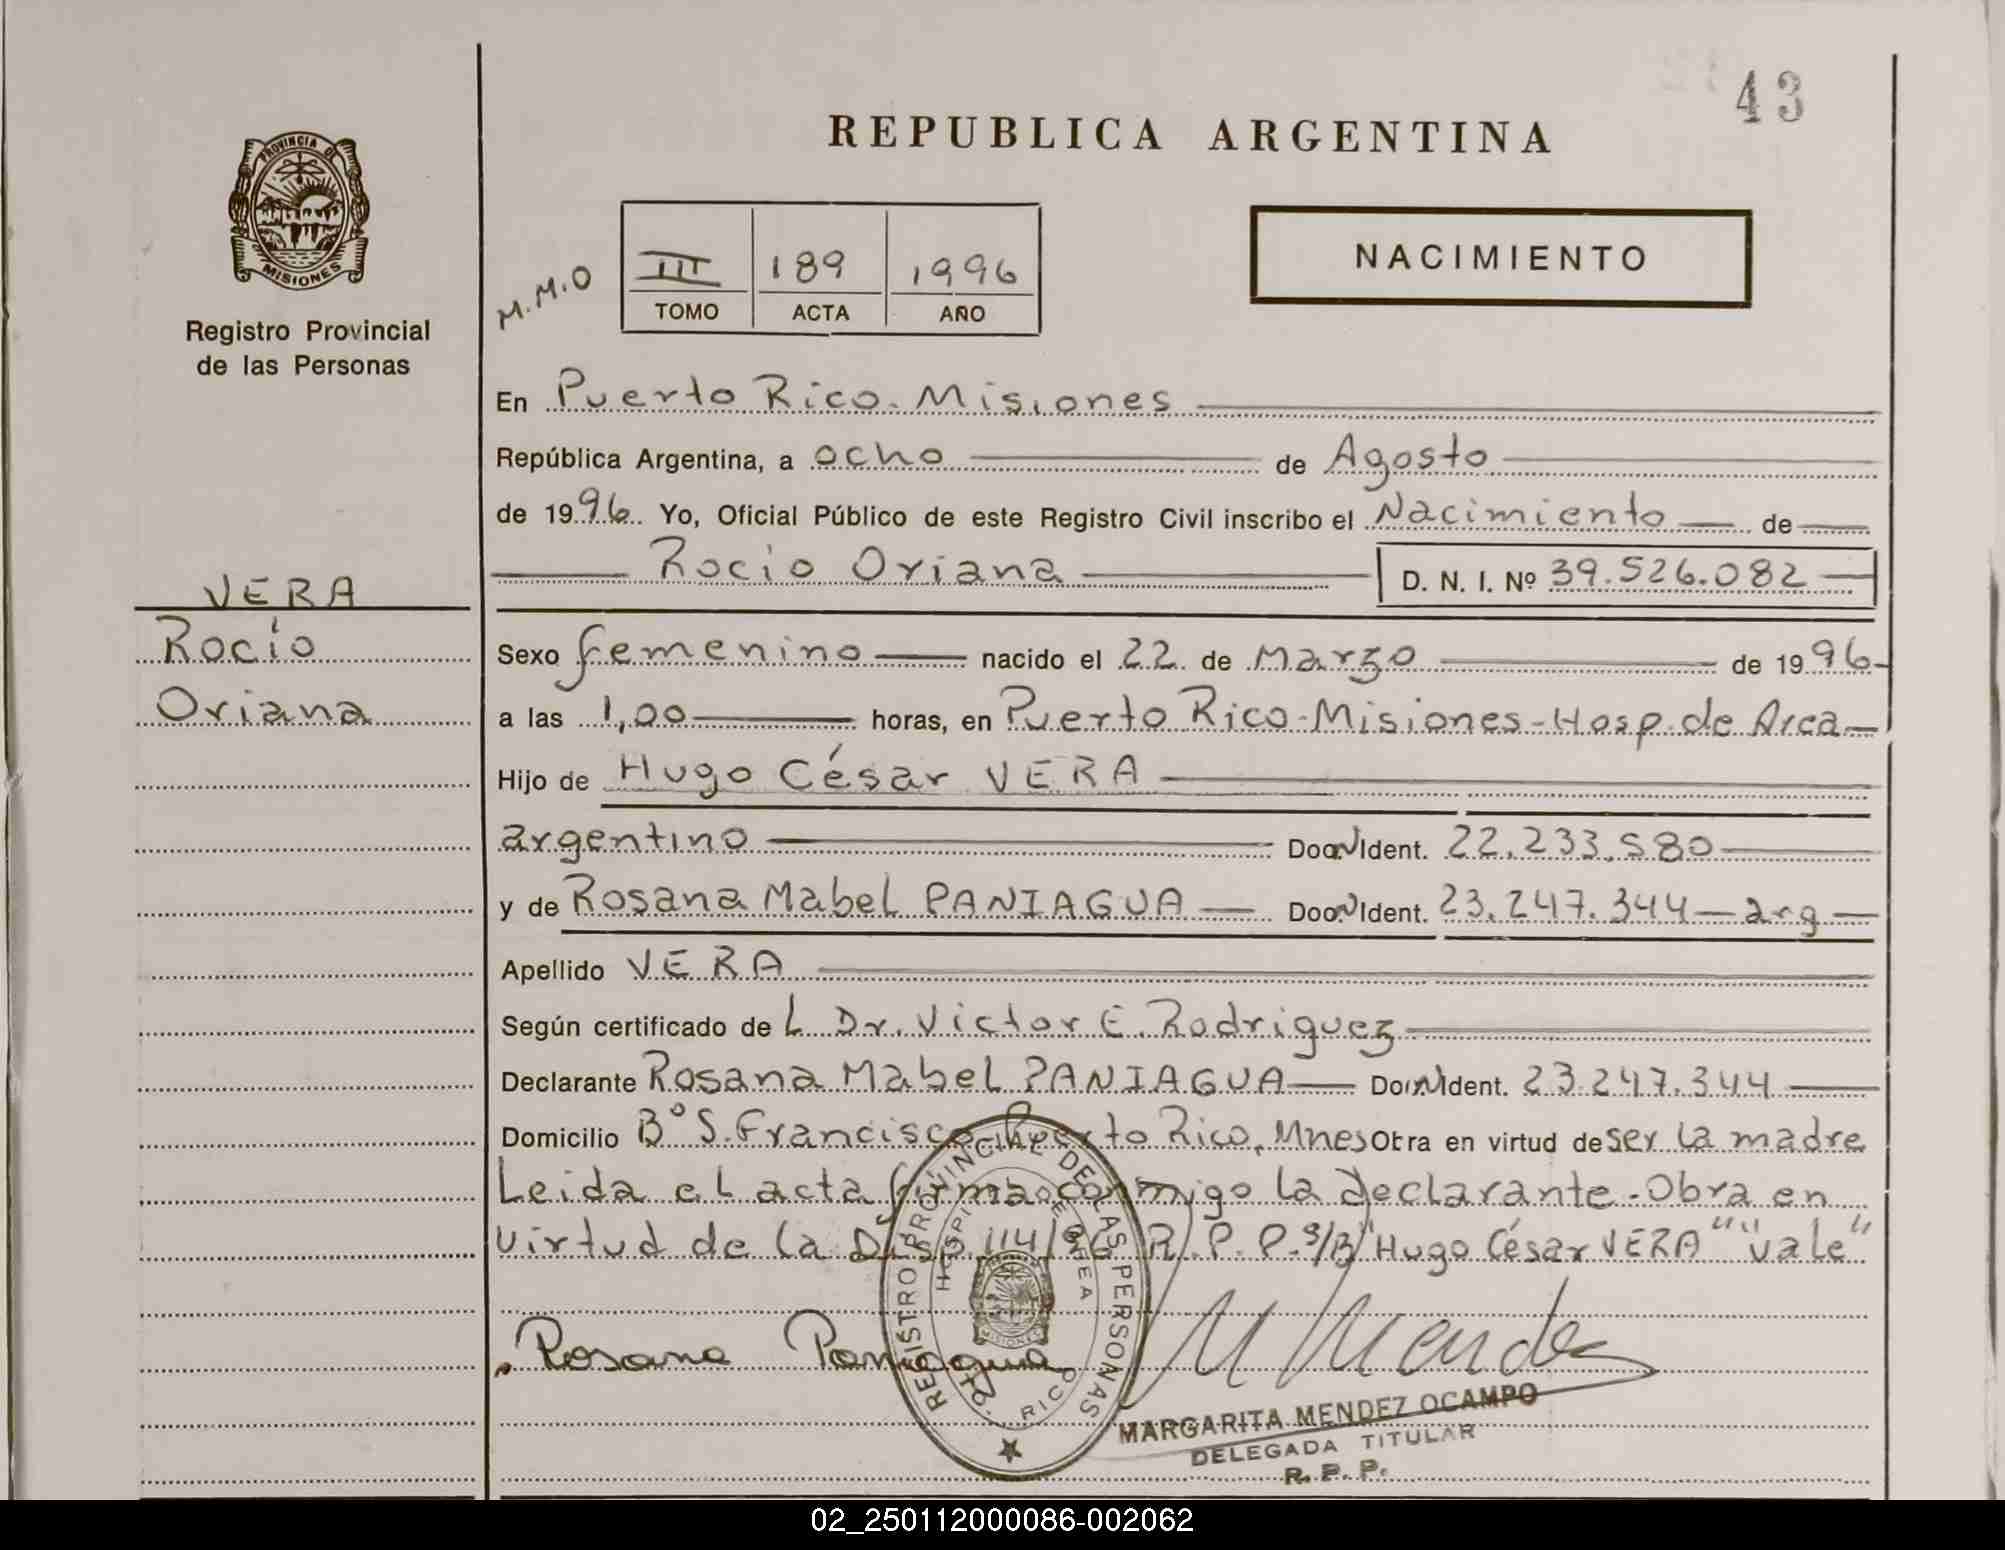 43
REPUBLICA ARGENTINA
PROVINCIA DE
MISIONES
NACIMIENTO
M.M.O
III 189 1996
TOMO ACTA AÑO
Registro Provincial
de las Personas
En Puerto Rico. Misiones
República Argentina, a ocho de Agosto
de 1996. Yo, Oficial Público de este Registro Civil inscribo el Nacimiento de
Rocio Oriana D. N. I. Nº 39.526.082
VERA
Rocío
Oriana
Sexo femenino nacido el 22 de Marzo de 1996
a las 1,00 horas, en Puerto Rico-Misiones-Hosp. de Area
Hijo de Hugo César VERA
argentino Ident. 22.233.580
y de Rosana Mabel PANIAGUA Ident. 23.247.344 - arg
Apellido VERA
Según certificado de L Dr. Victor E. Rodriguez
Declarante Rosana Mabel PANIAGUA Ident. 23.247.344
Domicilio Bº S. Francisco Puerto Rico, Mnes Obra en virtud de ser la madre
Leida el acta firma conmigo la declarante. Obra en
virtud de la Disp. 114/96 R.P.P. s/B "Hugo César VERA" "vale"
Rosana Paniagua
M Mendez
REGISTRO PROVINCIAL DE LAS PERSONAS
RICO
MISIONES
MARGARITA MENDEZ OCAMPO
DELEGADA TITULAR
R. P. P.
02_250112000086-002062